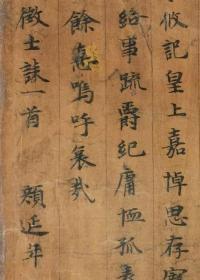 攸記皇上嘉悼思存寵
給事疏爵紀庸恤孤表
餘憙嗚呼哀哉
徵士誄一首 顏延年